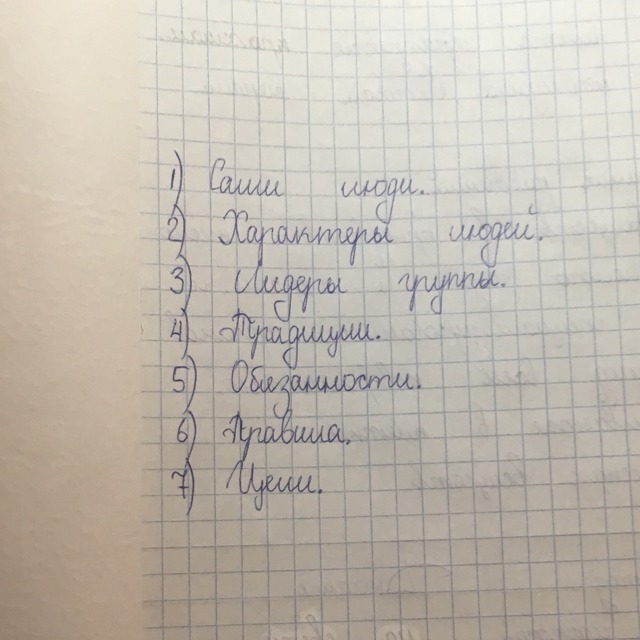 1) Сами люди.
2) Характеры людей.
3) Лидеры группы.
4) Традиции.
5) Обязанности.
6) Правила.
7) Цели.